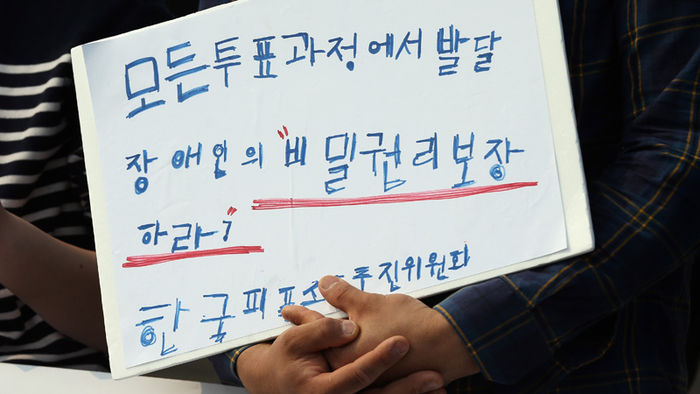 모든투표과정에서 발달
장애인의 "비밀권리보장
하라¡"
한국피 진위원화